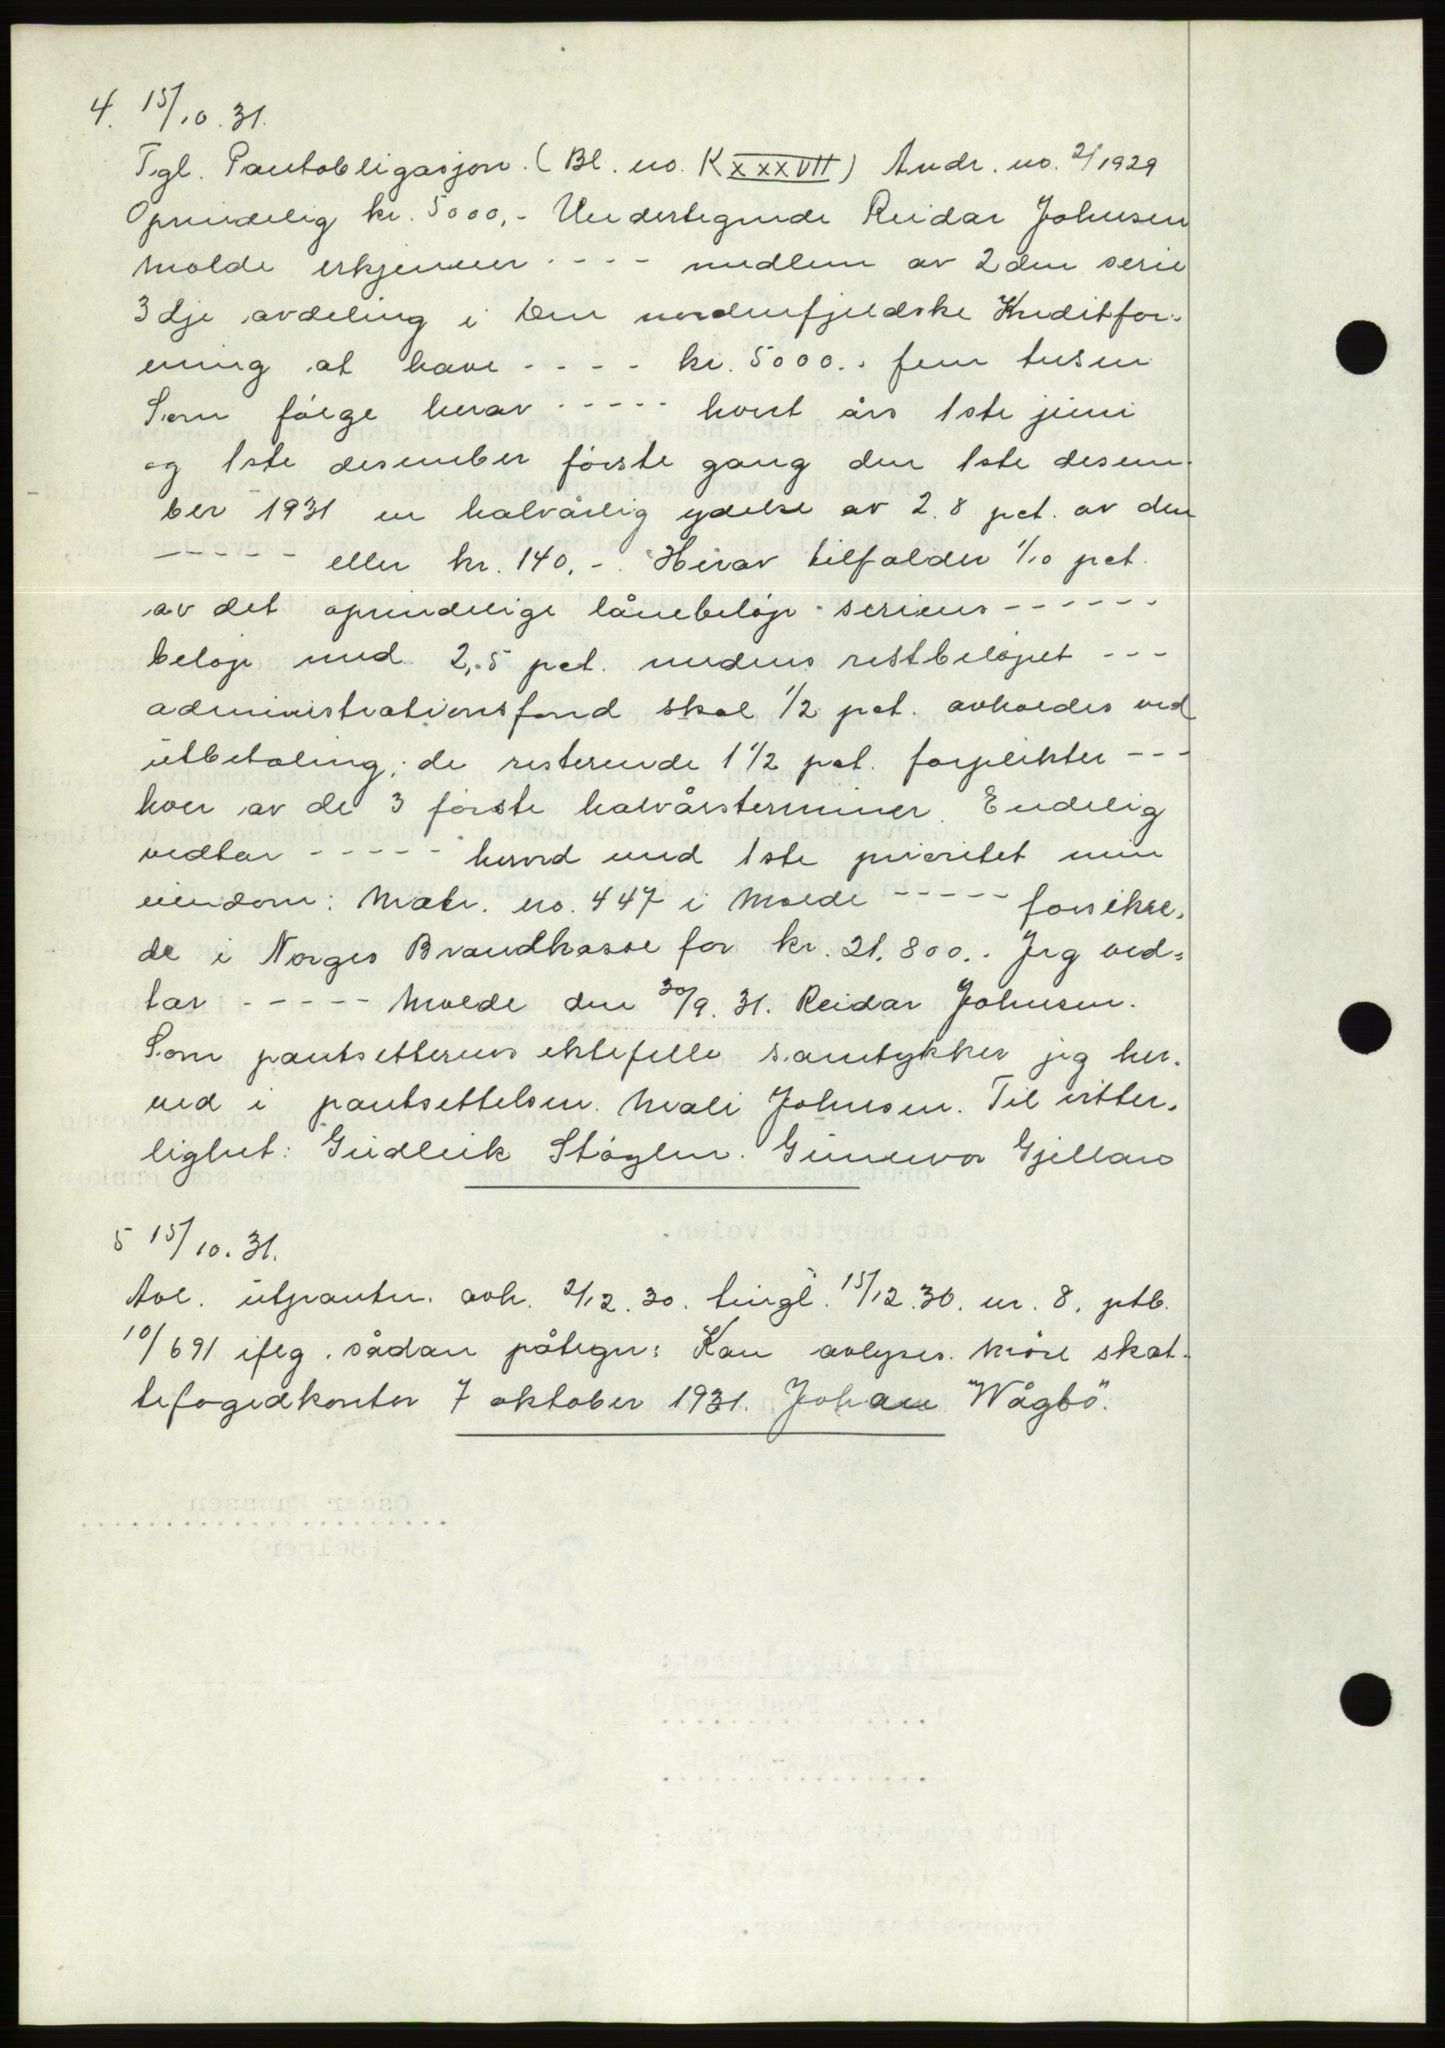 4. 15/10.31.
Tgl. Pantobligasjon. (Bl. no. K XXXVII) Andr. no. 2/1929
Oprindelig kr. 5000,- Undertegnede Reidar Johnsen
Molde erkjenner ---- medlem av 2den serie
3dje avdeling i Den nordenfjeldske Kreditfor-
ening at have ---- kr. 5000.. fem tusen
Som følge herav ----- hvert års 1ste juni
og 1ste desember første gang den 1ste desem-
ber 1931 en halvårlig ydelse av 2.8 pct. av den
----- eller kr. 140,-. Herav tilfalder 1/10 pct.
av det oprindelige lånebeløp seriens ------
beløp med 2,5 pct. medens restbeløpet ---
administrationsfond skal 1/2 pct. avholdes ved
utbetaling; de resterende 1 1/2 pct. forplikter ---
hver av de 3 første halvårsterminer. Endelig
vedtar ----- herved med 1ste prioritet min
eiendom: Matr. no. 447 i Molde ----- forsikre-
de i Norges Brandkasse for kr. 21.800.. Jeg ved-
tar ----- Molde den 30/9.31. Reidar Johnsen.
Som pantsetterens ektefelle samtykker jeg her-
ved i pantsettelsen. Mali Johnsen. Til vitter-
lighet: Gudleik Støylen. Gunvor Gjellan
5 15/10.31.
Avl. utpantn. avh. 2/12.30. tingl. 15/12.30. nr. 8, ptb.
10/691 iflg. sådan påtegn: Kan avlyses. Møre skat-
tefogedkontor 7 oktober 1931. Johan "Vågbø".